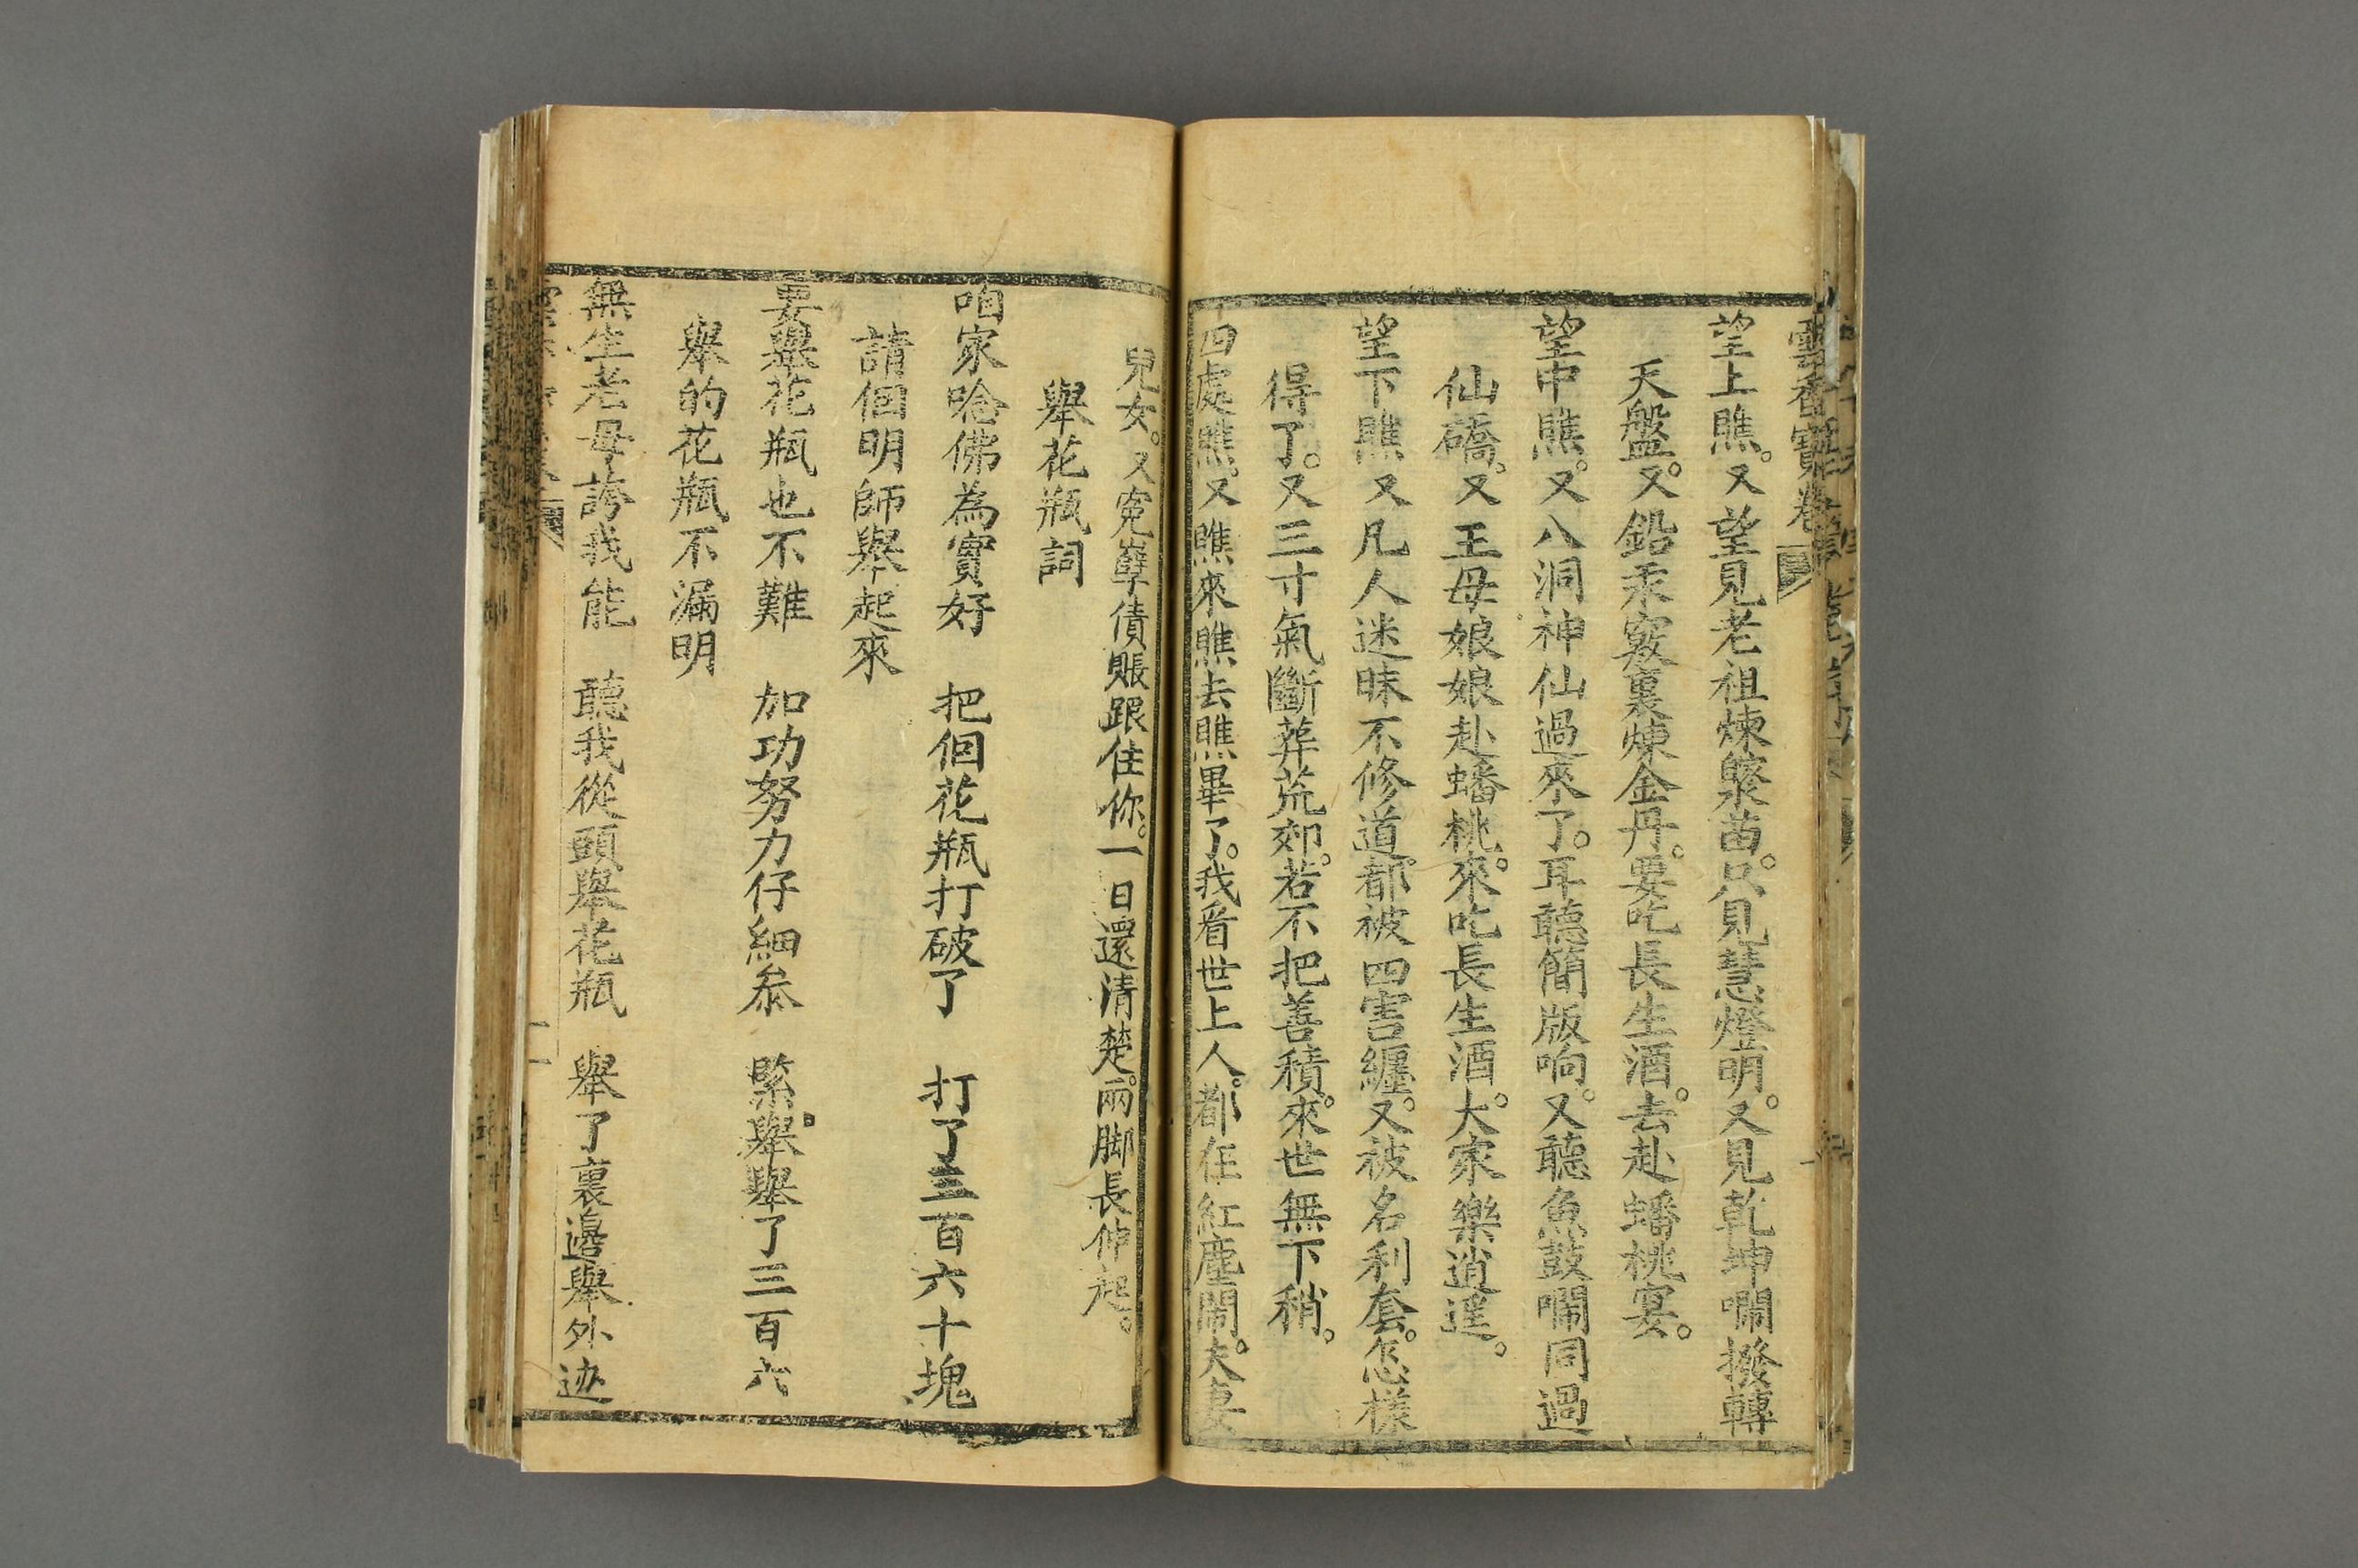 雲香寶卷
望上瞧。又望見老祖煉檾苗。只見慧燈明。又見乾坤嘲撥轉
天盤。又鉛汞竅裏煉金丹。要吃長生酒。去赴蟠桃宴。
望中瞧。又八洞神仙過來了。耳聽簡版响。又聽魚鼓嘲同過
仙礄。又王母娘娘赴蟠桃。來吃長生酒。大家樂逍遥。
望下瞧又凡人迷昧不修道。都被四害纏。又被名利套。怎樣
得了。又三寸氣斷葬荒郊。若不把善積。來世無下稍。
四處瞧。又瞧來瞧去瞧畢了。我看世上人。都在紅塵鬧。夫妻
兒女。又寃孽債賬跟住你。一日還清楚。兩脚長伸起。
舉花瓶詞
咱家唸佛為寳好 把個花瓶打破了 打了三百六十塊
請個明師舉起來
要舉花瓶也不難 加功努力仔細叅 緊舉舉了三百六
舉的花瓶不漏明
無生老母誇我能 聽我從頭舉花瓶 舉了裏邉舉外边
二一